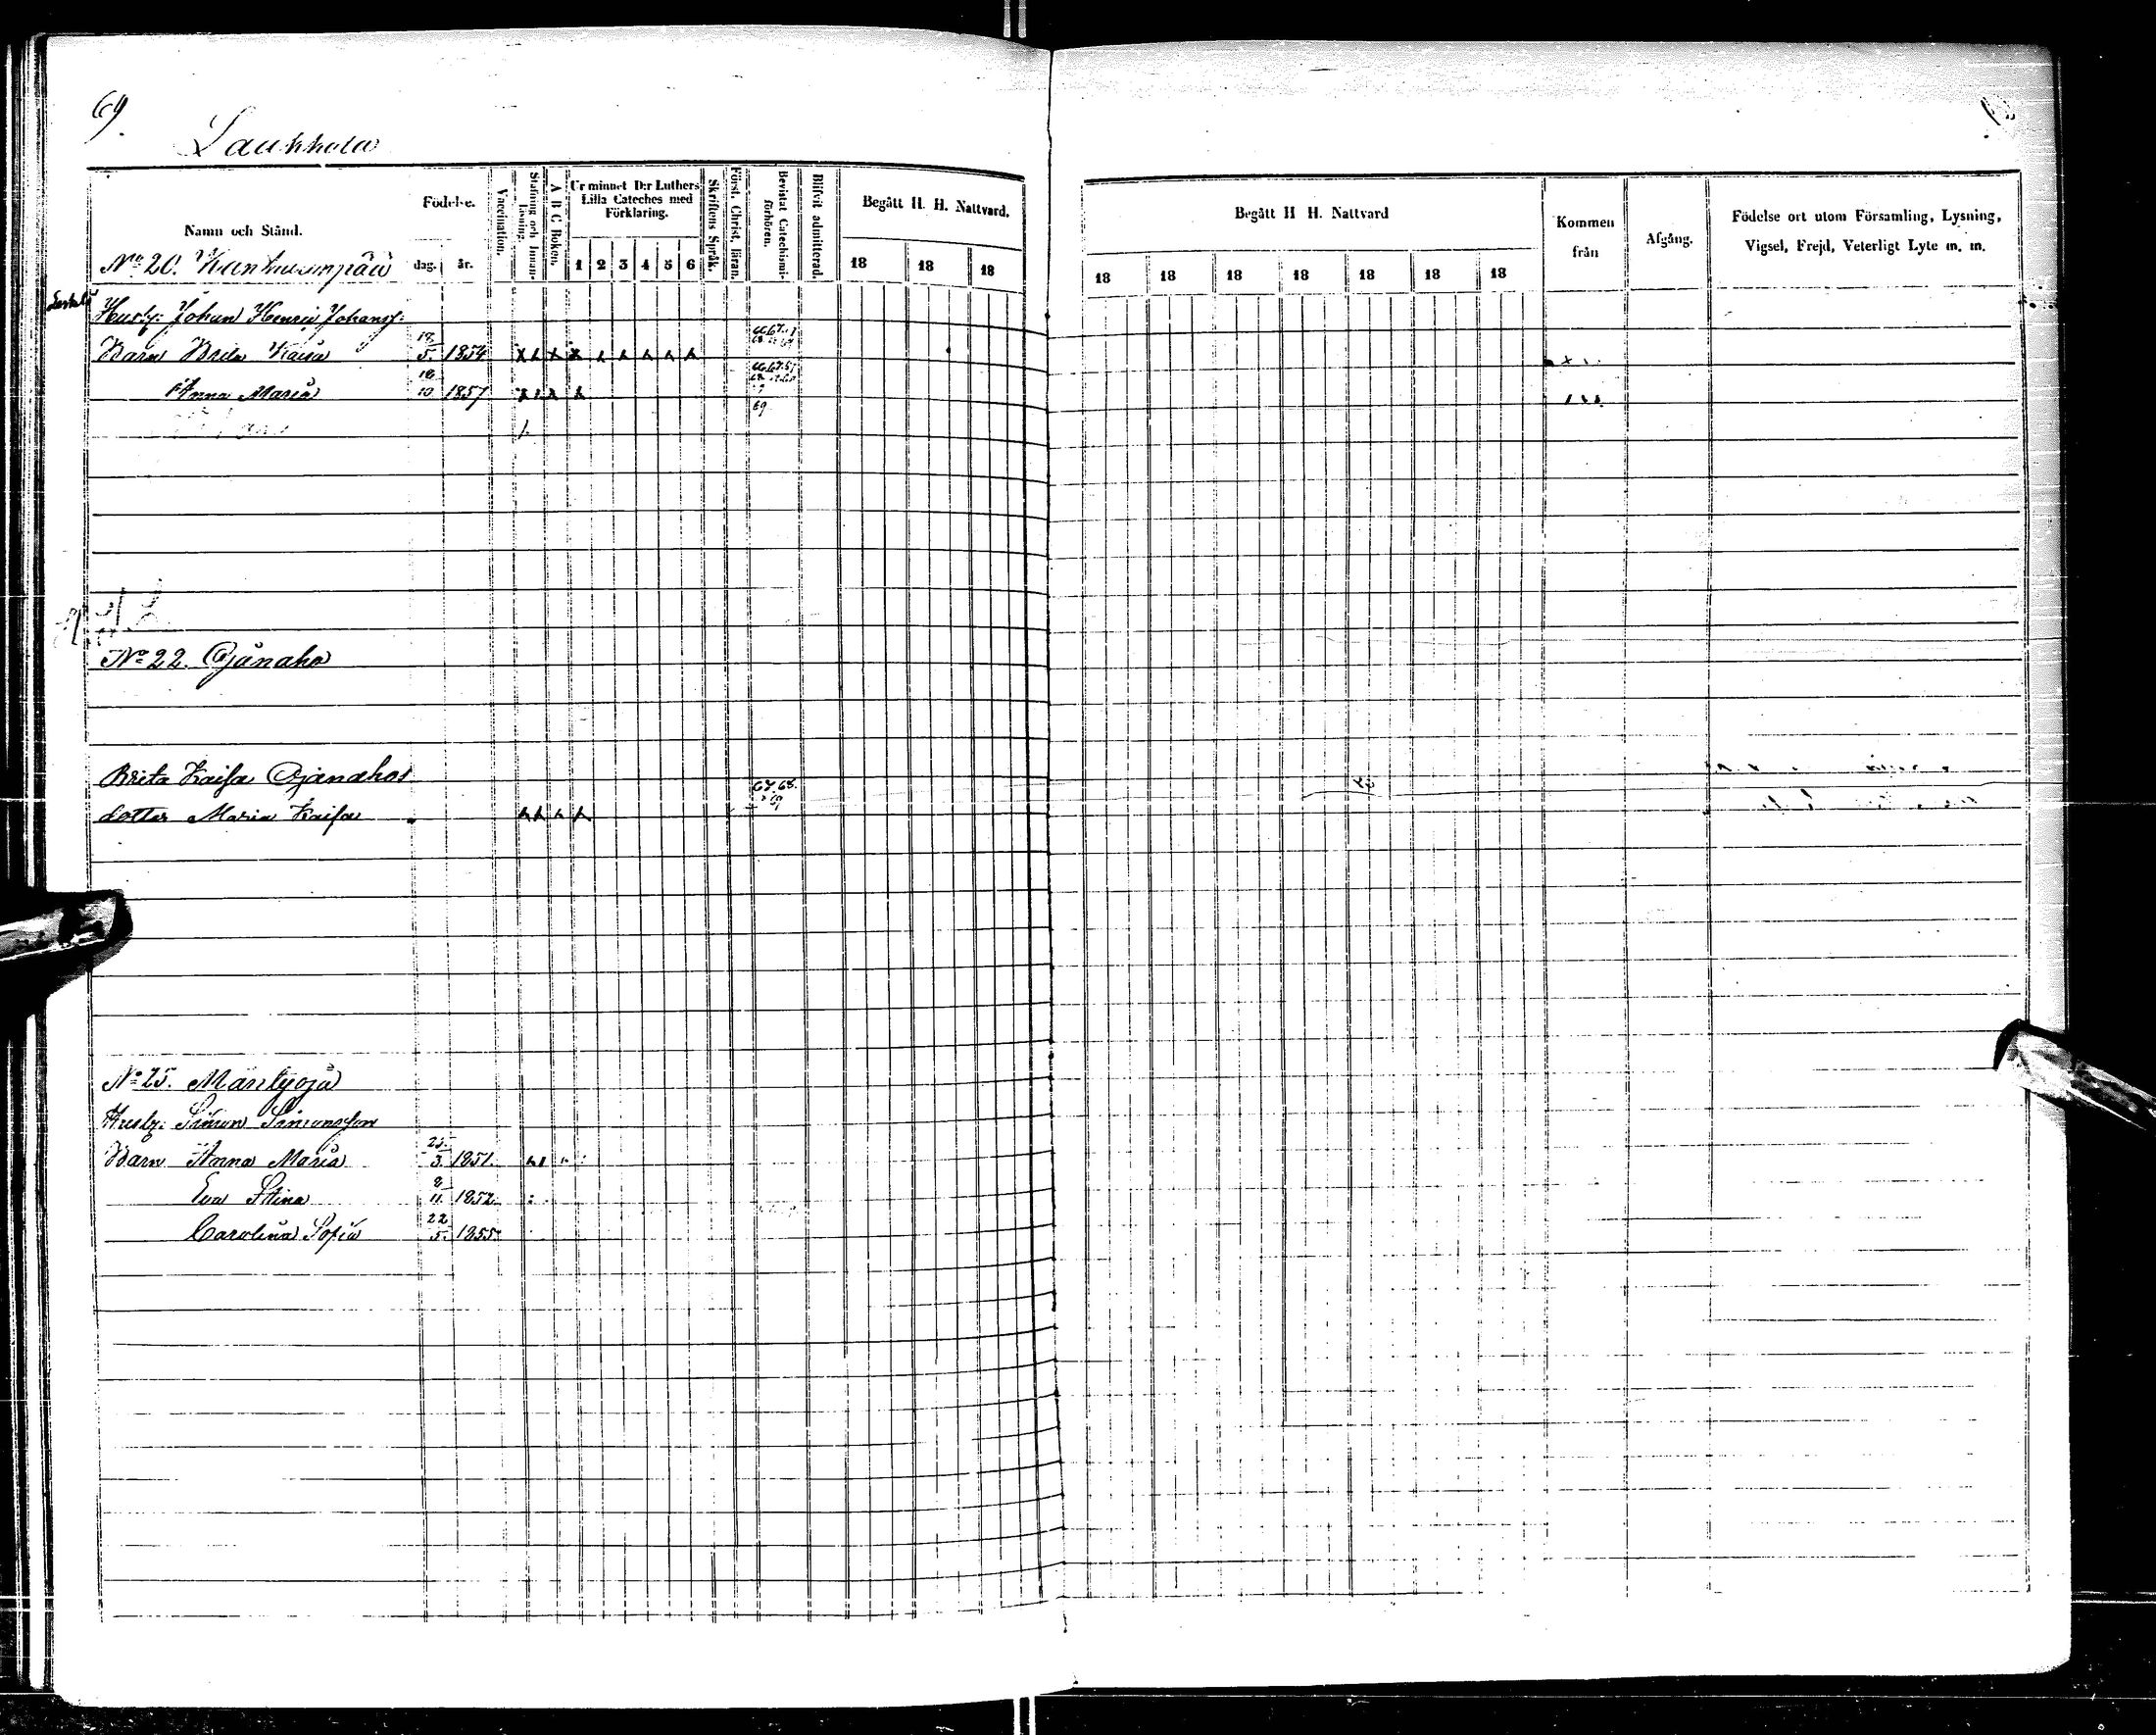 69.
Laukkola
Namn och Stånd.
Födelse.
dag. år.
Vaccination.
Stafning och Innan-läsning.
A B C Boken.
Ur minnet D:r Luthers Lilla Cateches med Förklaring.
1 2 3 4 5 6
Skriftens Språk.
Först. Christ. läran.
Bevistat Catechismi-förhören.
Blifvit admitterad.
Begått H. H. Nattvard.
18 18 18
Begått H H. Nattvard
18 18 18 18 18 18 18
Kommen från
Afgång.
Födelse ort utom Församling, Lysning, Vigsel, Frejd, Veterligt Lyte m. m.
No 20.
Husb: Johan Henric Johanss:
Barn Brita Kaisa 5. 1854
Anna Maria 18 10 1857
69
No 22. Ojänaho
Brita Kaisa Ojanahos
dotter Maria Kaisa 67. 68. 69
No 25. Mäntyoja
Husb: Simon Simonsson
Barn Anna Maria 25 3. 1851.
Eva Stina 8 11. 1852.
Carolina Sofia 22 5. 1855.